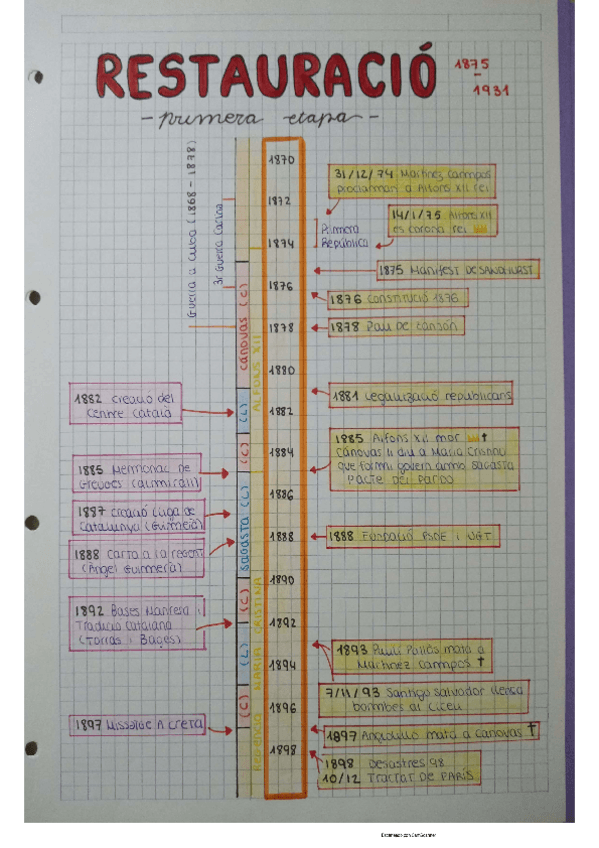 RESTAURACIÓ
1875
-
1931
- primera etapa -
Guerra a Cuba (1868 - 1878)
3ª Guerra Carlina
1870
1872
1874
1876
1878
1880
1882
1884
1886
1888
1890
1892
1894
1896
1898
Primera
República
CÁNOVAS (C)
(L)
(C)
SAGASTA (L)
(C)
(L)
(C)
ALFONS XII
REGÈNCIA MARIA CRISTINA
31/12/74 Martínez Campos
proclaman a Alfons XII rei
14/1/75 Alfons XII
és corona rei
1875 Manifest DE SANDHURST
1876 CONSTITUCIÓ 1876
1878 Pau DE Zanjón
1881 Legalització republicans
1885 Alfons XII mor
Cánovas li diu a Maria Cristina
que formi govern amb Sagasta
PACTE DEL PARDO
1888 Fundació PSOE i UGT
1893 Paulí Pallàs mata a
Martínez Campos
7/11/93 Santiago Salvador llença
bombes al Liceu
1897 Angiolillo mata a Cánovas
1898 Desastres 98
10/12 Tractat DE PARÍS
1882 Creació del
Centre Català
1885 Memorial de
Greuges (Almirall)
1887 creació Lliga de
Catalunya (Guimerà)
1888 Carta a la regent
(Àngel Guimerà)
1892 Bases Manresa i
Tradició Catalana
(Torras i Bages)
1897 Missatge A Creta